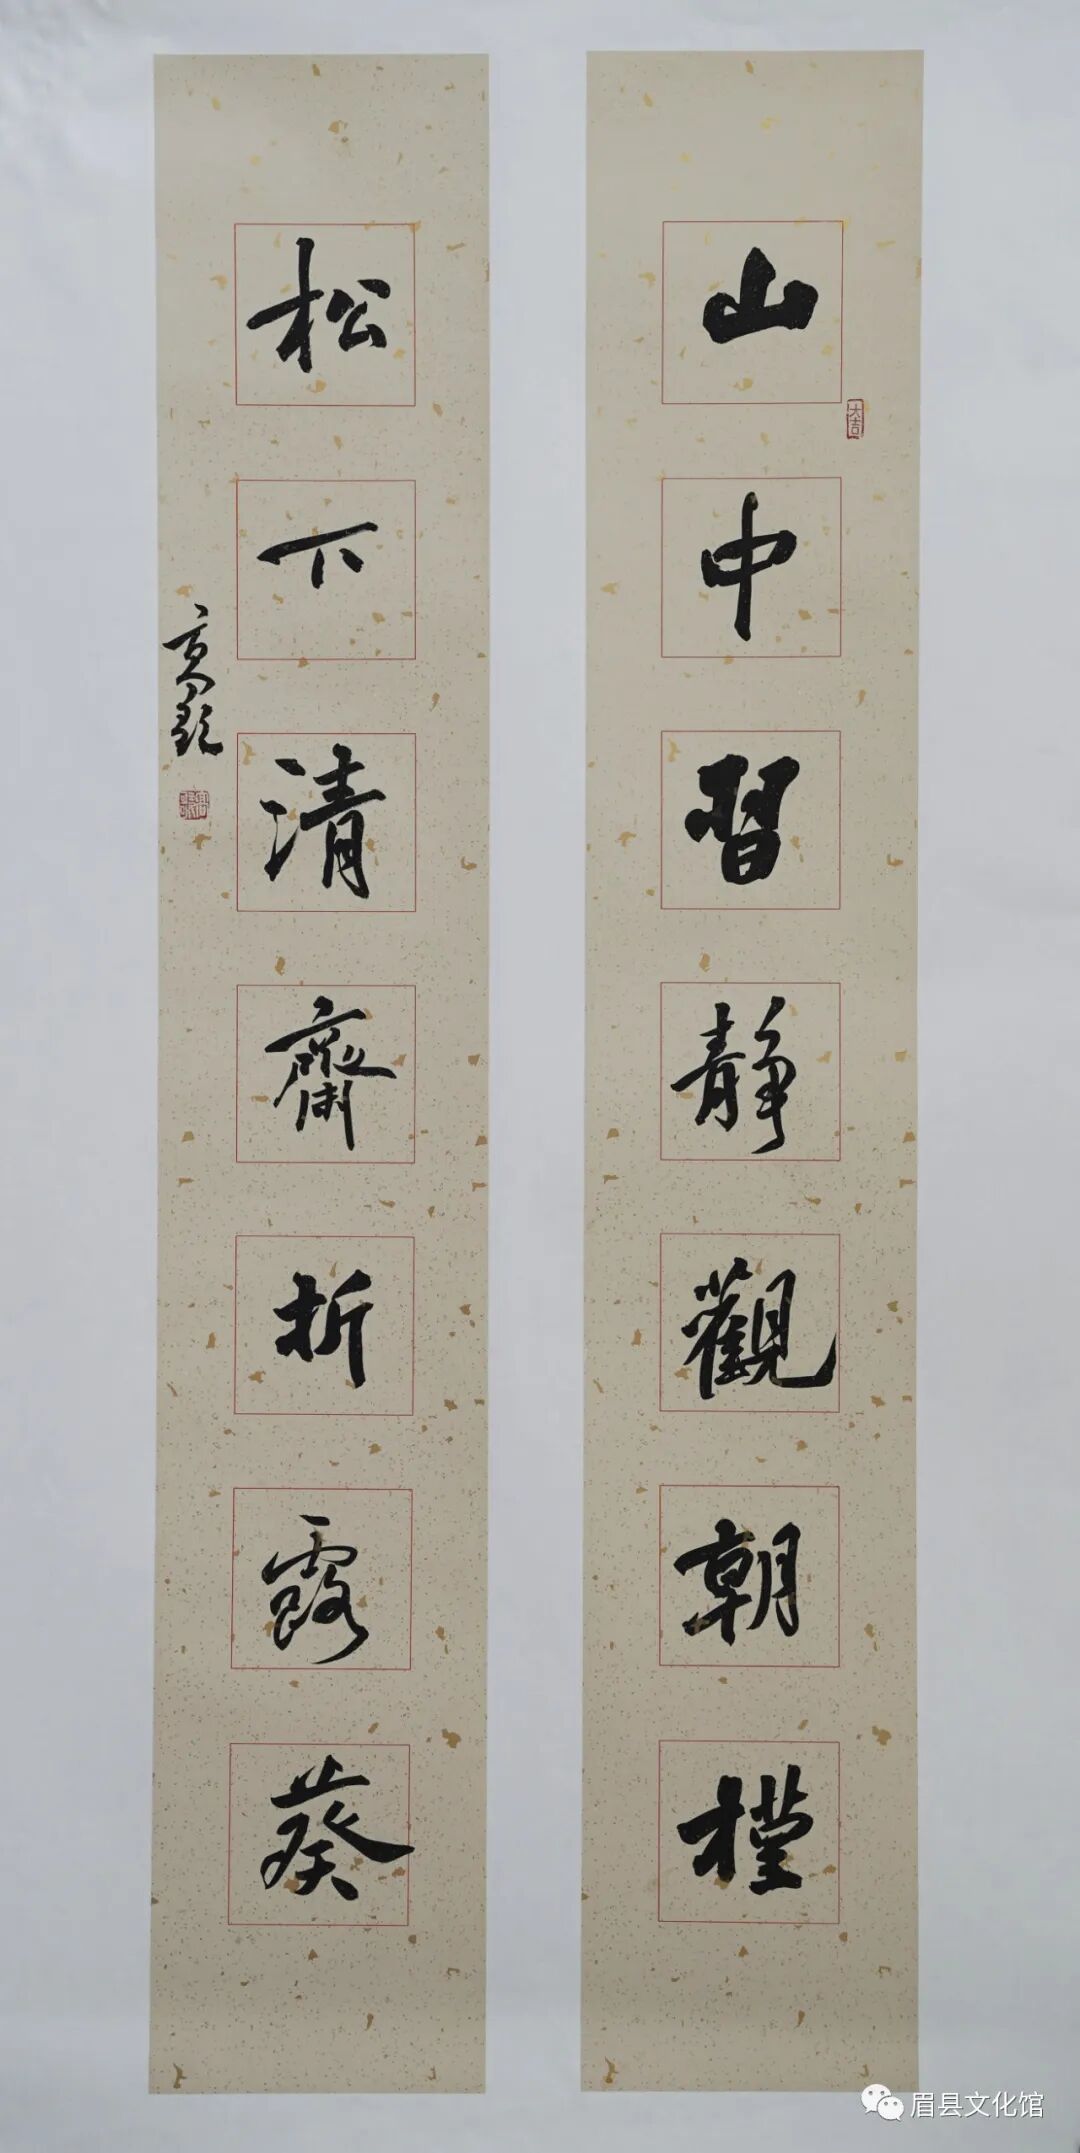 山中習靜觀朝槿
大吉
松下清齋折露葵
眉县文化馆